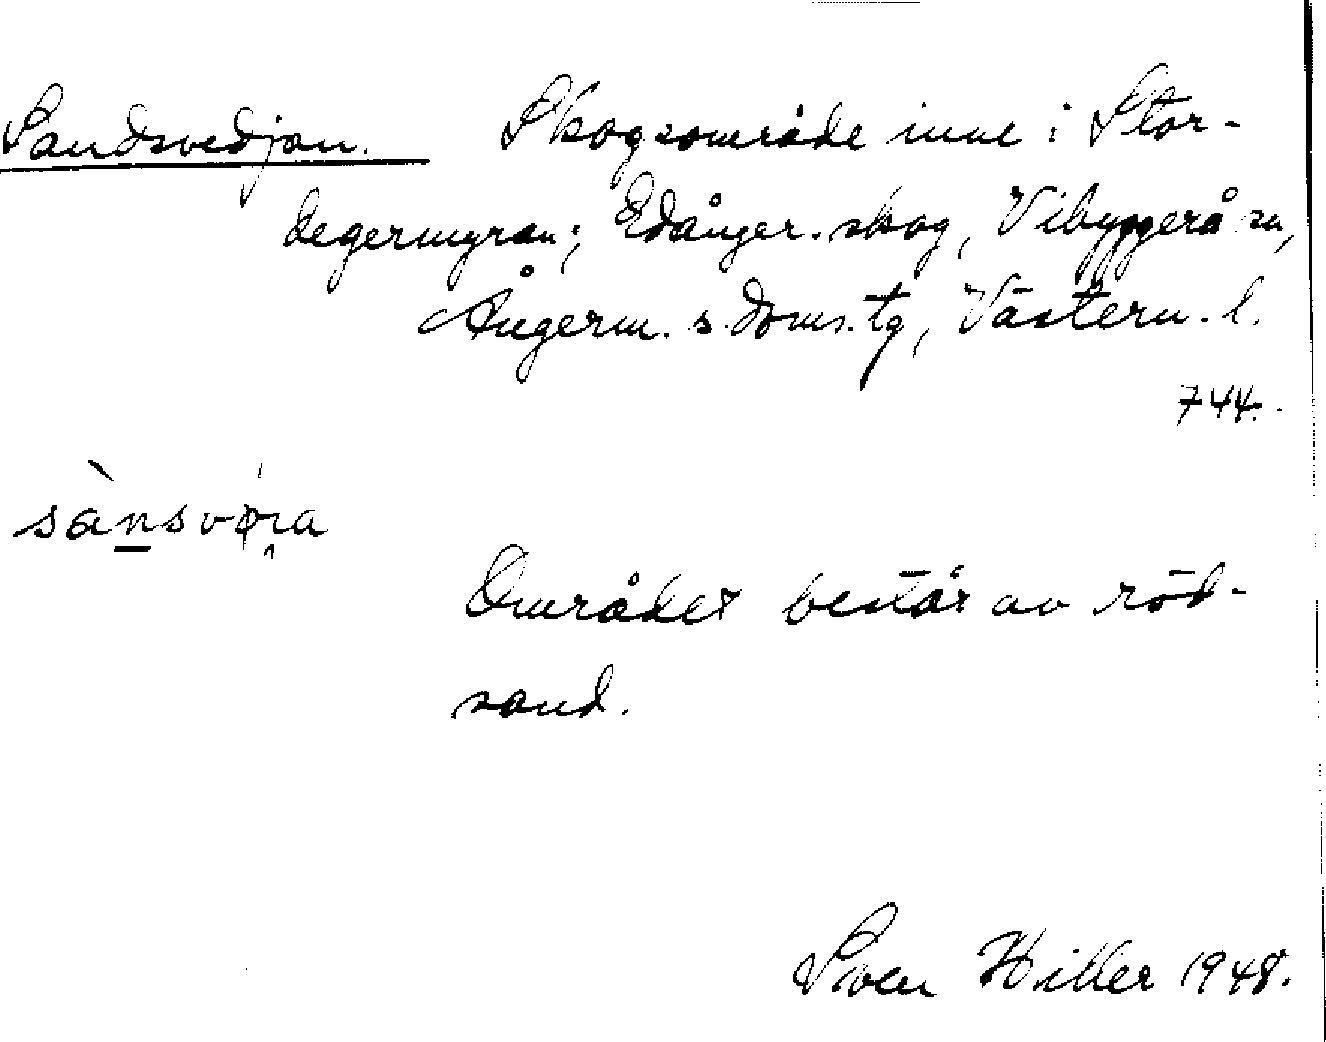 Sandsvedjan. Skogsområde inne i Stor-
degermyran; Edånger. skog, Vibyggerå sn,
Ångerm. s. doms. tg, Västern. l.
744.
Området består av röd-
sand.
Sven Hiller 1948.